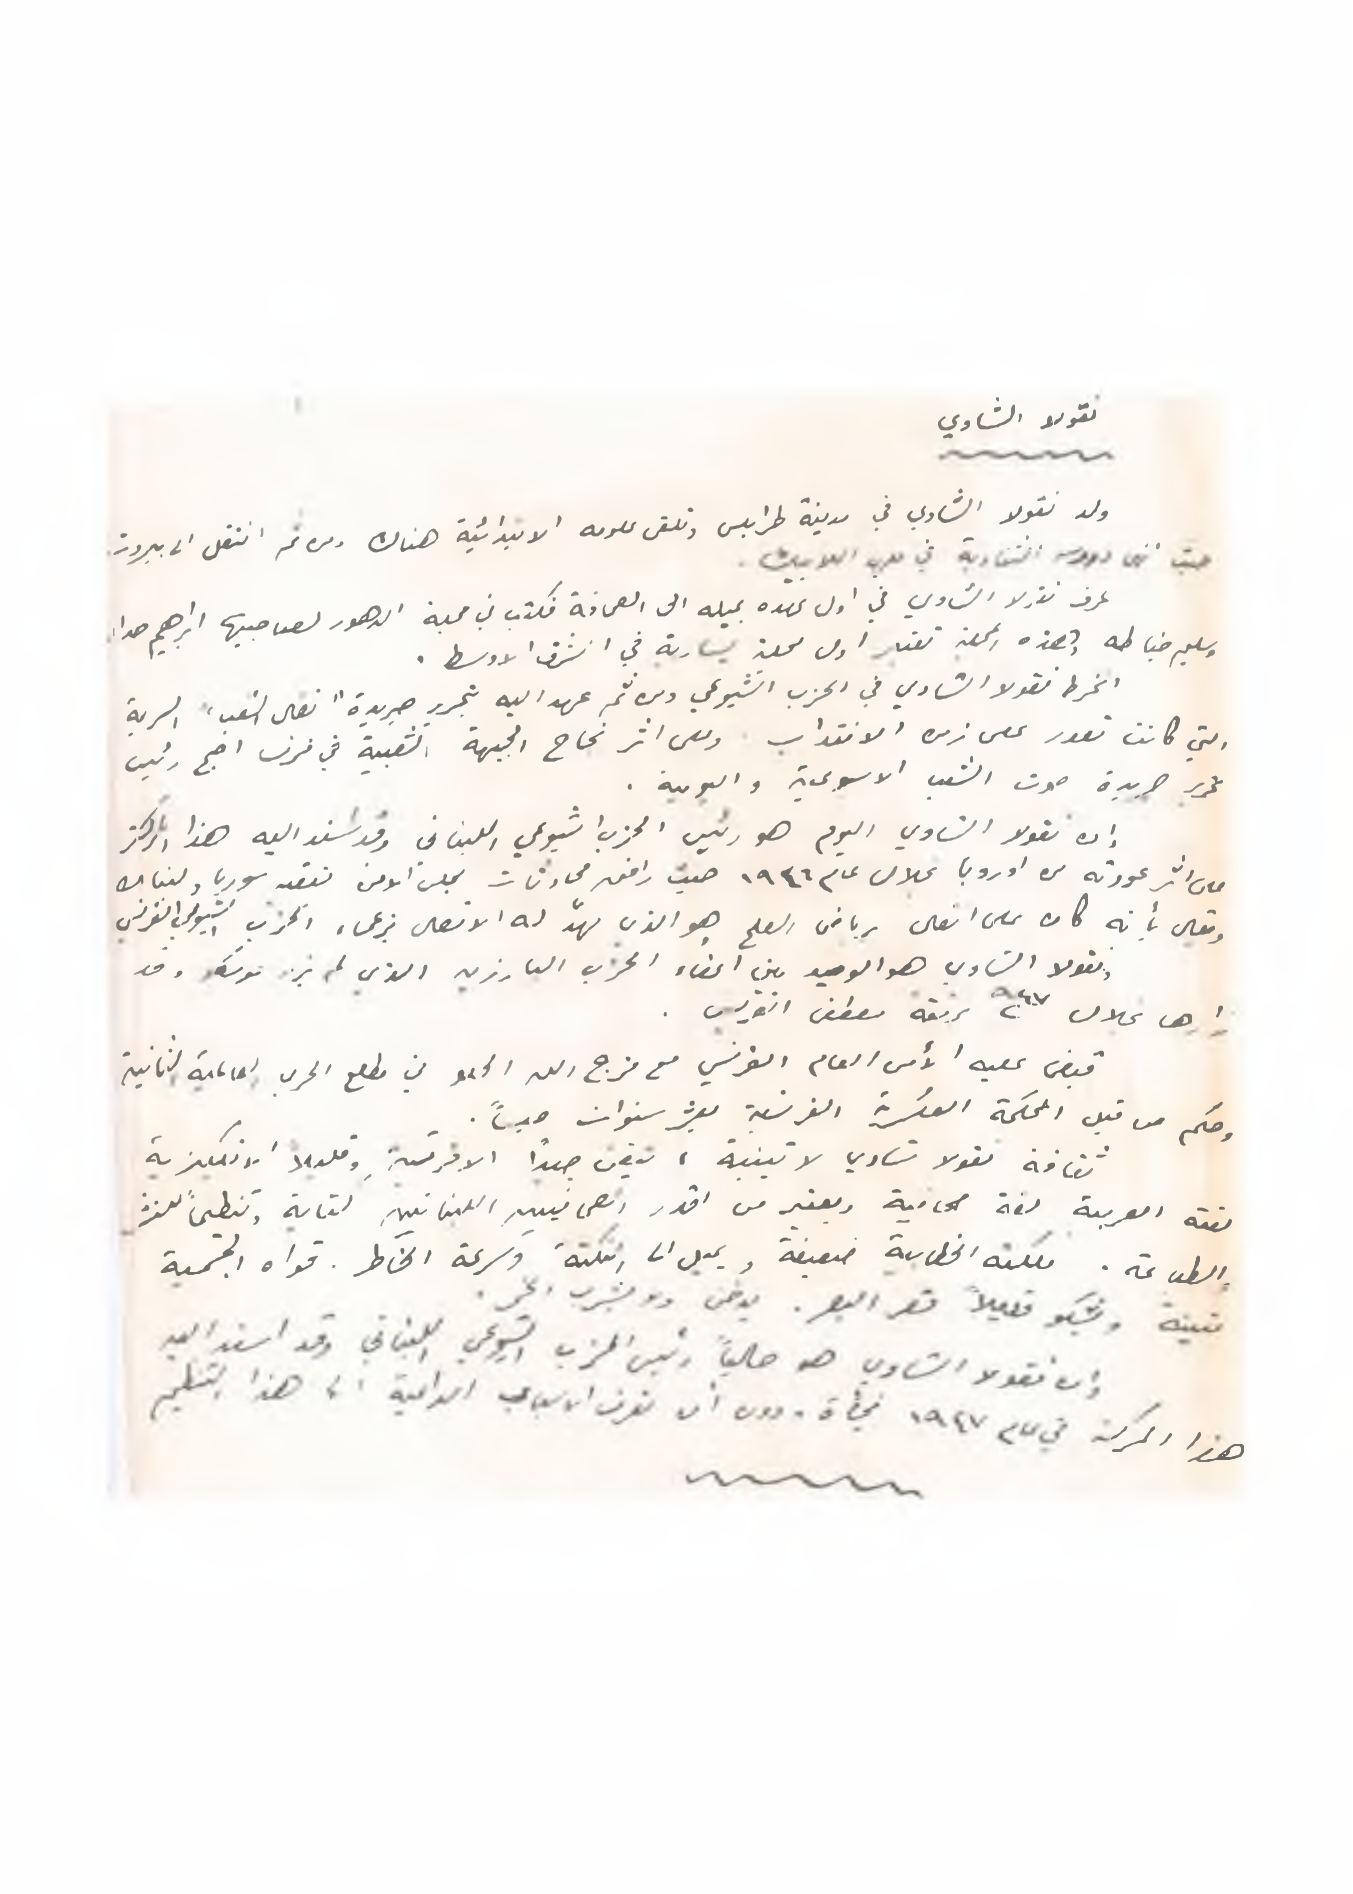 نقولا الشاوي
ولد نقولا الشاوي في مدينة طرابلس وتلقى علومه الابتدائية هناك ومن ثم انتقل الى بيروت
حيث انهى دروسه الثانوية في
عرف نقولا الشاوي في اول عهده بميله الى الصحافة فكتب في مجلة الدهور لصاحبيها ابراهيم حداد
وسليم خياطه وهذه المجلة تعتبر اول مجلة يسارية في الشرق الاوسط .
انخرط نقولا الشاوي في الحزب الشيوعي ومن ثم عهد اليه بتحرير جريدة " نضال الشعب " السرية
التي كانت تصدر على زمن الانتداب . وعلى اثر نجاح الجبهة الشعبية في فرنسا اصبح رئيس
تحرير جريدة صوت الشعب الاسبوعية و اليومية .
إن نقولا الشاوي اليوم هو رئيس الحزب الشيوعي اللبناني وقد اسند اليه هذا المركز
على اثر عودته من اوروبا خلال عام ١٩٤٦ حيث رافق محادثات مجلس الامن بقضية سوريا ولبنان
وقيل بأنه كان على اتصال برياض الصلح وهو الذي مهّد له الاتصال بزعماء الحزب الشيوعي الفرنسي
ونقولا الشاوي هو الوحيد بين اعضاء الحزب البارزين الذي لم يزر موسكو وقد
زارها خلال ٩٤٧ برفقة مصطفى العريس .
قبض عليه الأمن العام الفرنسي مع فرج الله الحلو في مطلع الحرب العالمية الثانية
وحكم من قبل المحكمة العسكرية الفرنسية بعشر سنوات حبساً .
ثقافة نقولا شاوي لاتينية ، يتقن جيداً الافرنسية وقليلا الانكليزية
لغته العربية لغة صحافية ويعتبر من اقدر الصحافيين اللبنانيين كتابة وتنظيماً للنشر
والطباعة . ملكته الخطابية ضعيفة ويميل الى النكتة وسرعة الخاطر . قواه الجسمية
متينة ويشكو قليلاً قصر البصر . يدخن ولا يشرب الخمر .
وإن نقولا الشاوي هو حالياً رئيس الحزب الشيوعي اللبناني وقد اسند اليه
هذا المركز في عام ١٩٤٧ فجأة ودون أن نعرف الاسباب الداعية الى هذا التنظيم